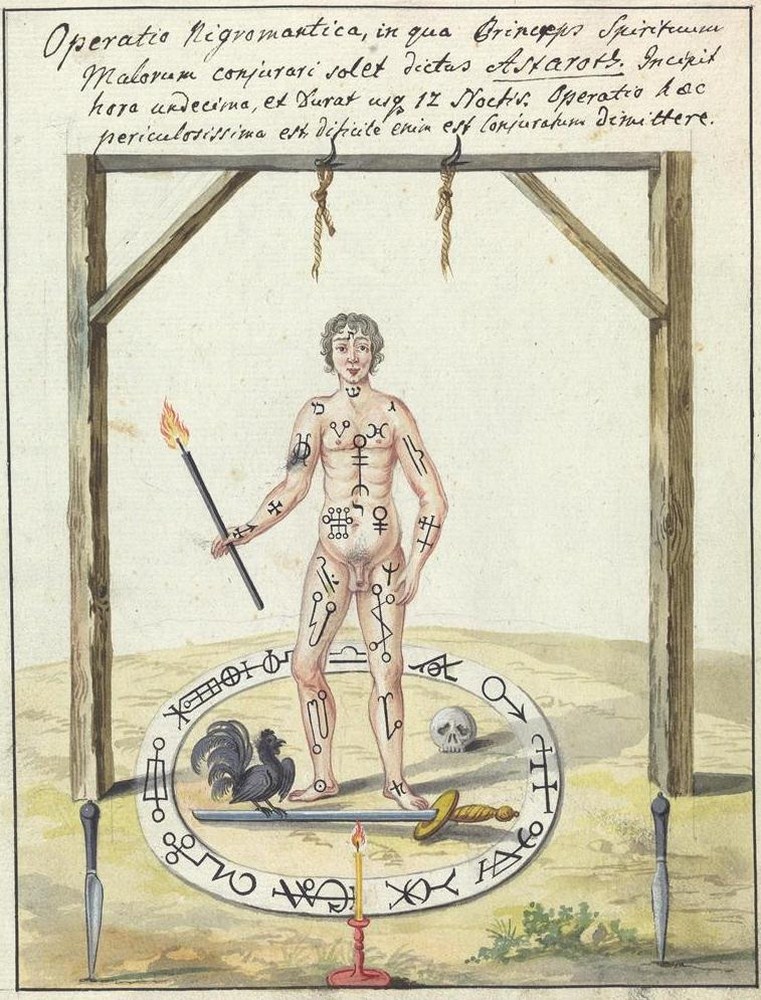 Operatio Nigromantica, in qua Princeps Spirituum
Malorum conjurari solet dictus Astaroth. Incipit
hora undecima, et durat usq 12 Noctis. Operatio hæc
periculosissima est, dificile enim est Conjuratum dimittere.